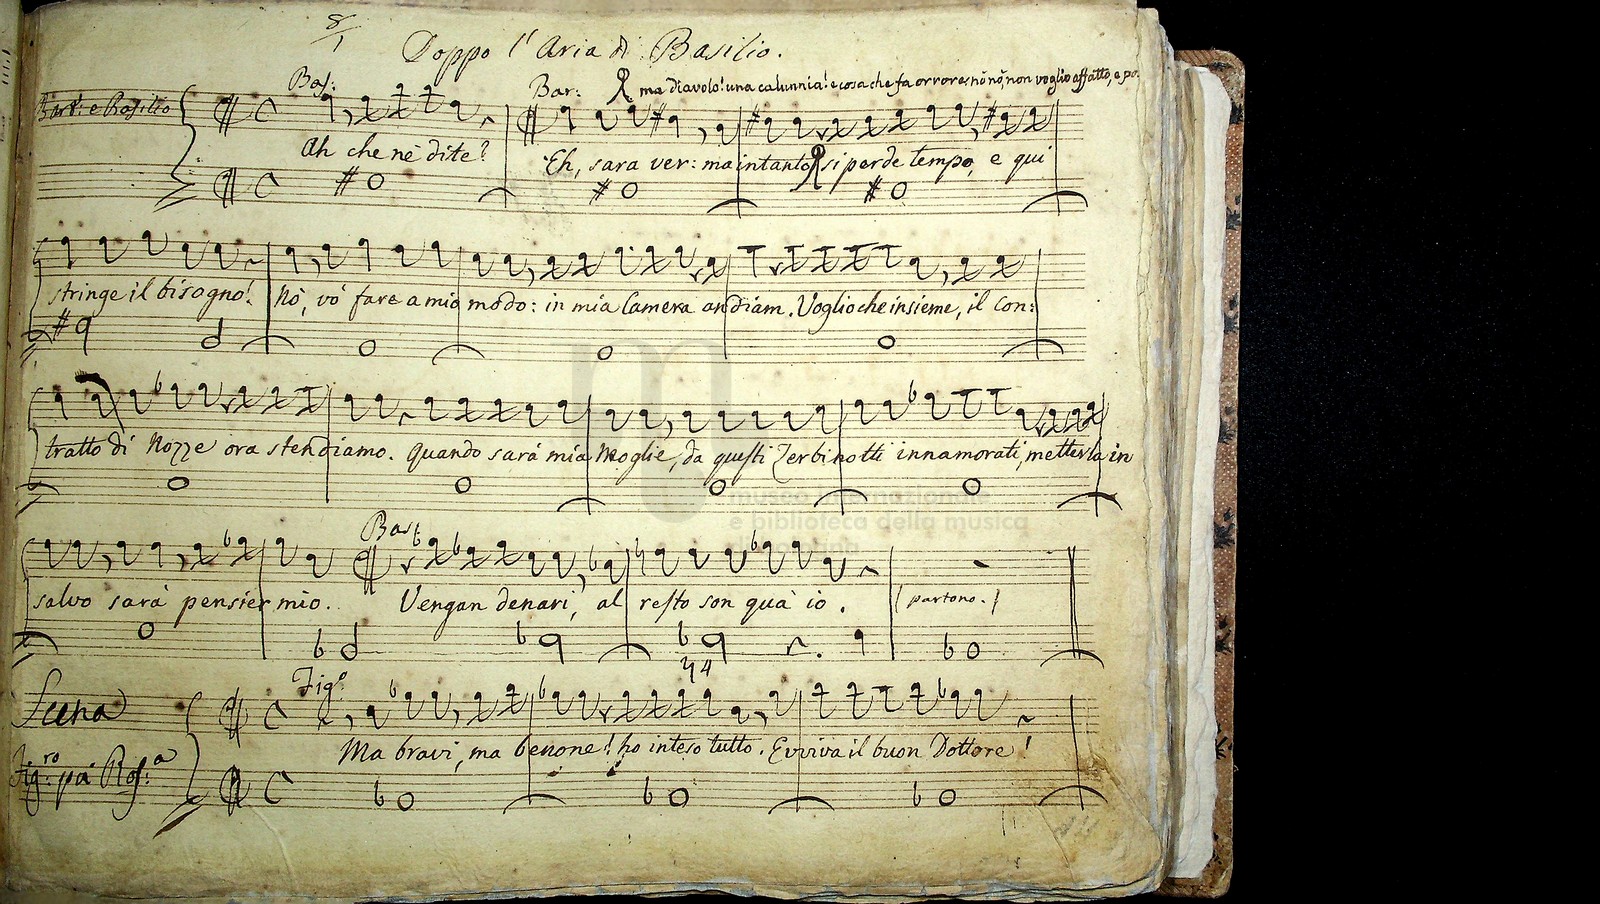 8/1
Doppo l'Aria di Basilio.
Bas: Bar: ma diavolo! una calunnia! e cosa che fa orrore, nò nò, non voglio affatto, e po.
Bart: e Basilio
Ah che nè dite? Eh, sara ver: ma intanto si perde tempo, e qui
stringe il bisogno! Nò, vò fare a mio modo: in mia Camera andiam. Voglio che insieme, il con:
tratto di Nozze ora stendiamo. Quando sarà mia Moglie, da questi Zerbinotti innamorati, metterla in
Bas:
salvo sarà pensier mio. Vengan denari, al resto son quà io. (partono.)
Figo:
Scena
Ma bravi, ma benone! ho inteso tutto. Evviva il buon Dottore!
Figro: poi Rosa:
museo internazionale
e biblioteca della musica
di bologna